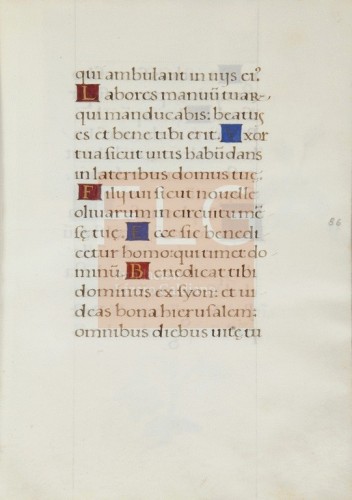 qui ambulant in uijs ei?
Labores manuū tuar-
qui manducabis: beatus
es et bene tibi erit. Exor
tua sicut uitis habūdans
in lateribus domus tuę.
Filij tui sicut nouelle
oliuarum in circuitu mē
sę tuę. Ecce sic benedi
cetur homo: qui timet do
minū. Benedicat tibi
dominus ex syon: et ui
deas bona hierusalem:
omnibus diebus uitę tu
86